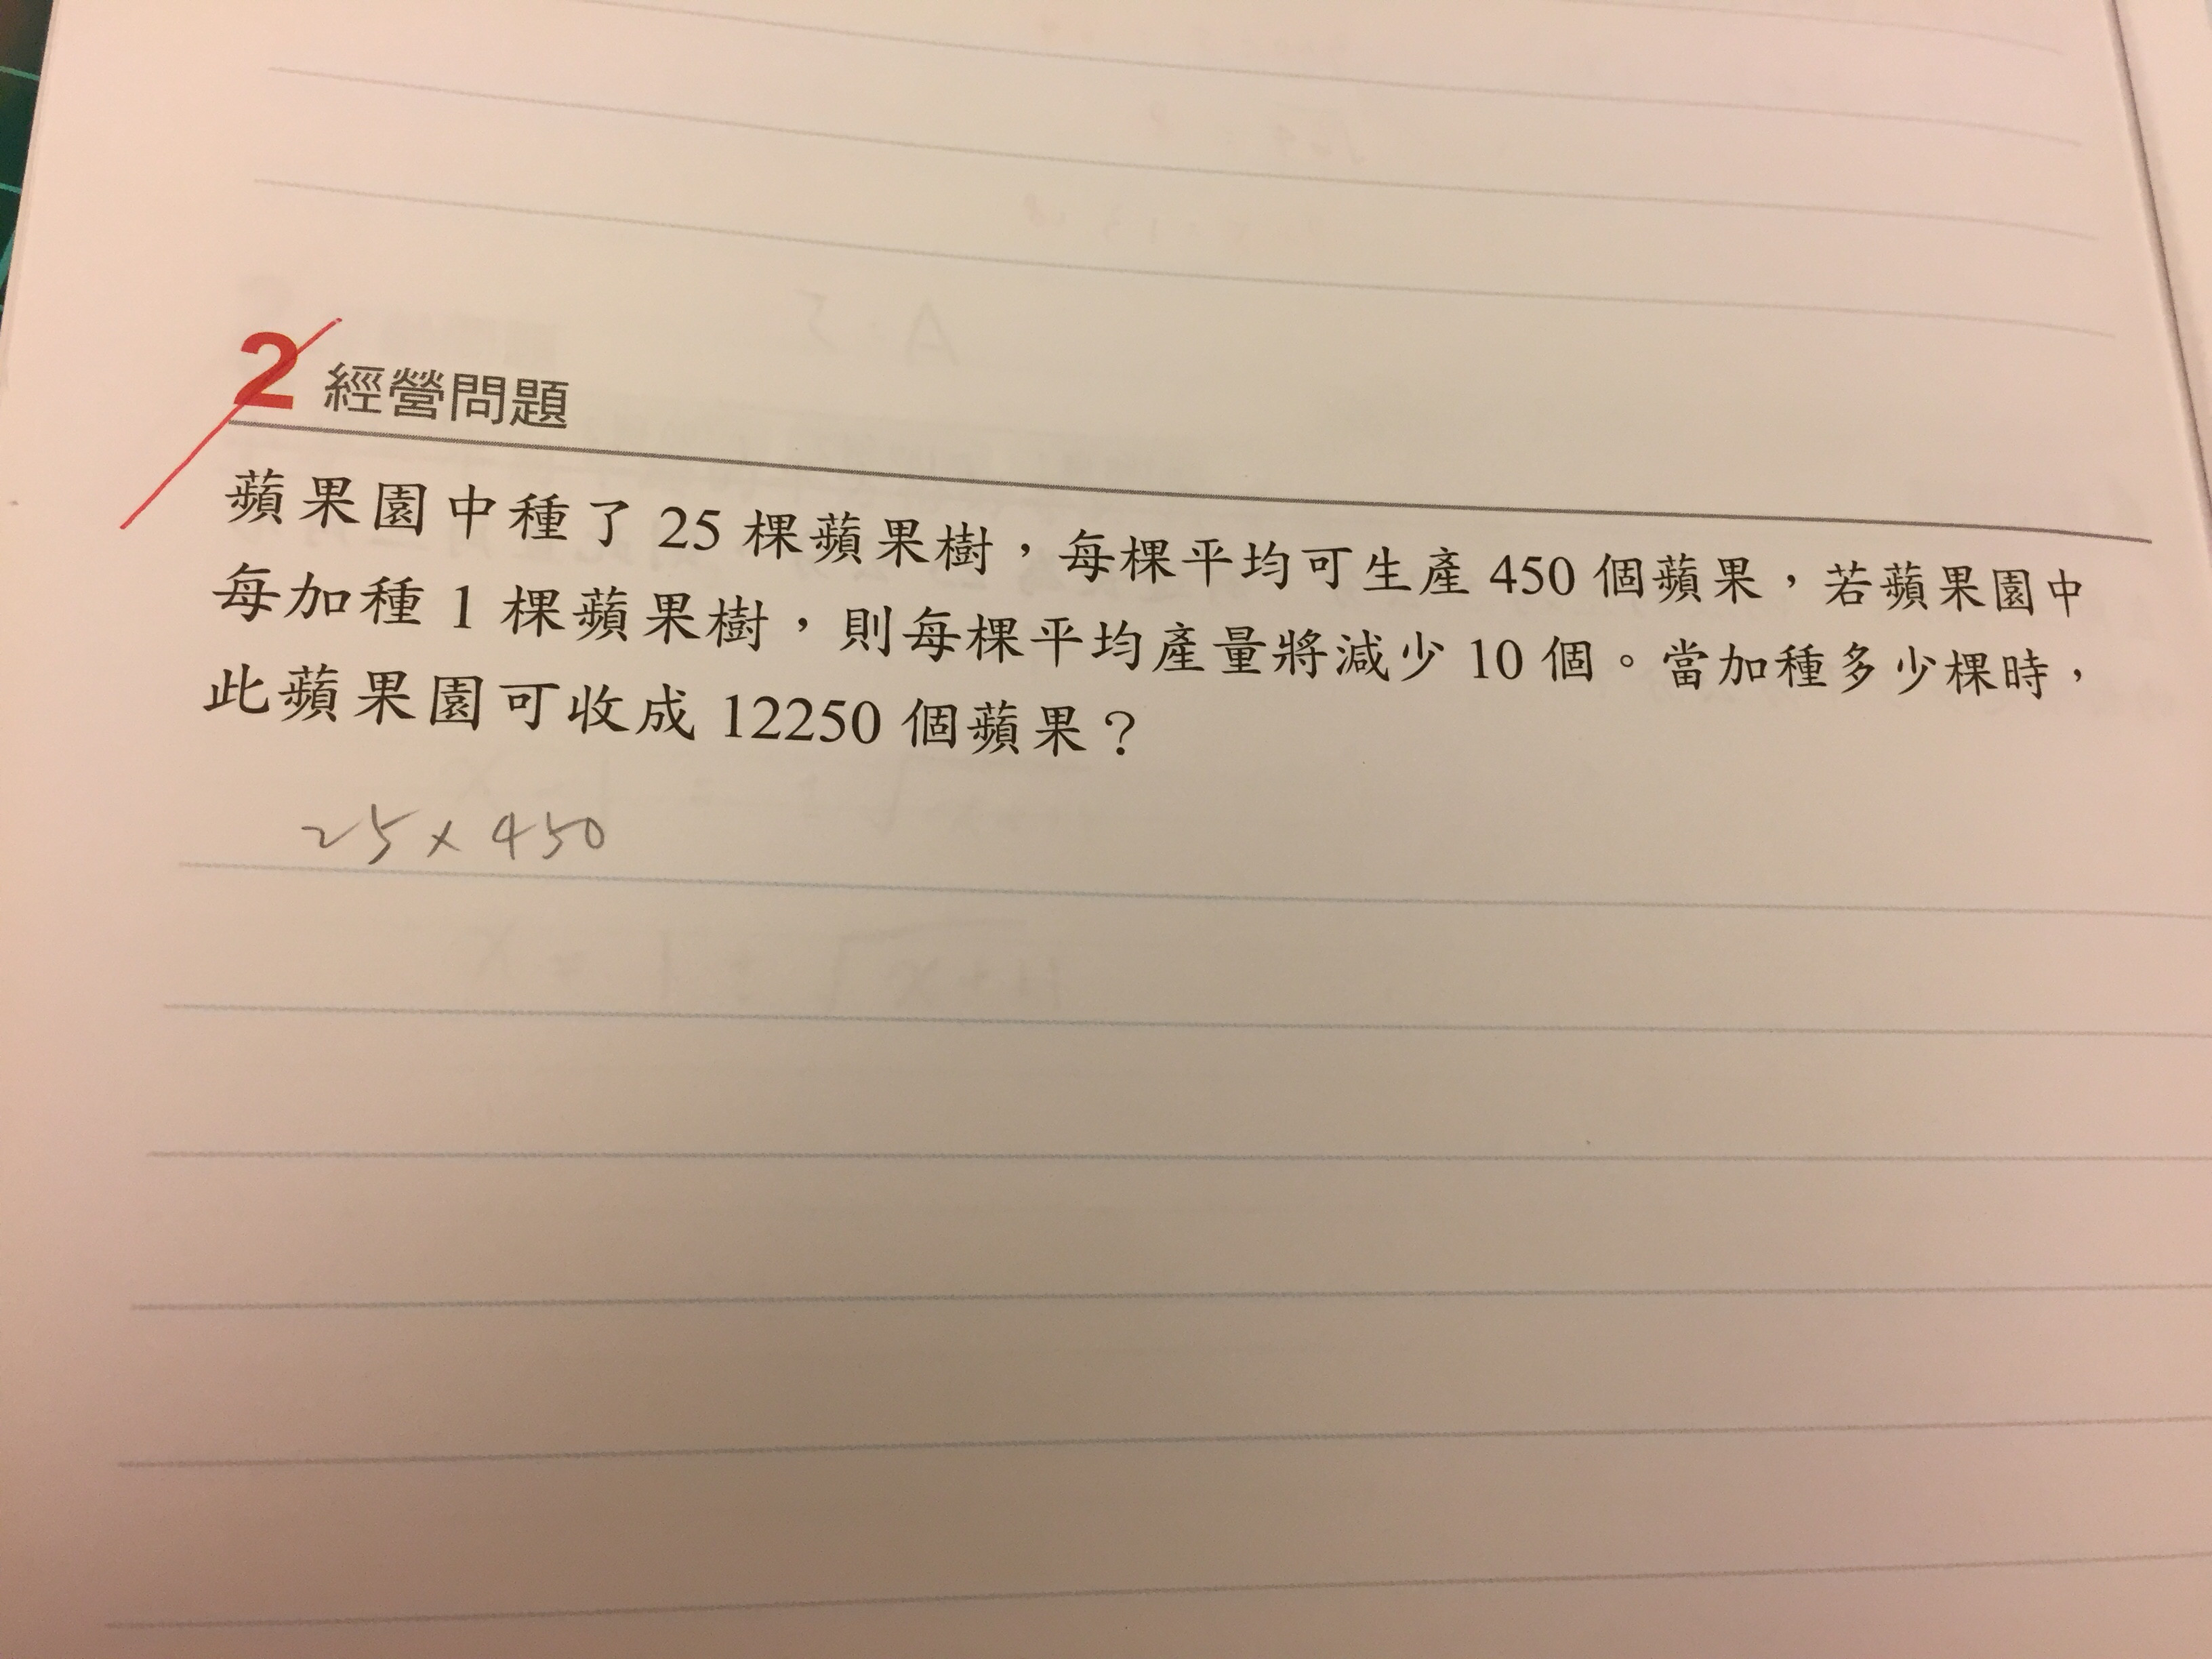 2 經營問題
蘋果園中種了 25 棵蘋果樹,每棵平均可生產 450 個蘋果,若蘋果園中
每加種 1 棵蘋果樹,則每棵平均產量將減少 10 個。當加種多少棵時,
此蘋果園可收成 12250 個蘋果?
25 × 450